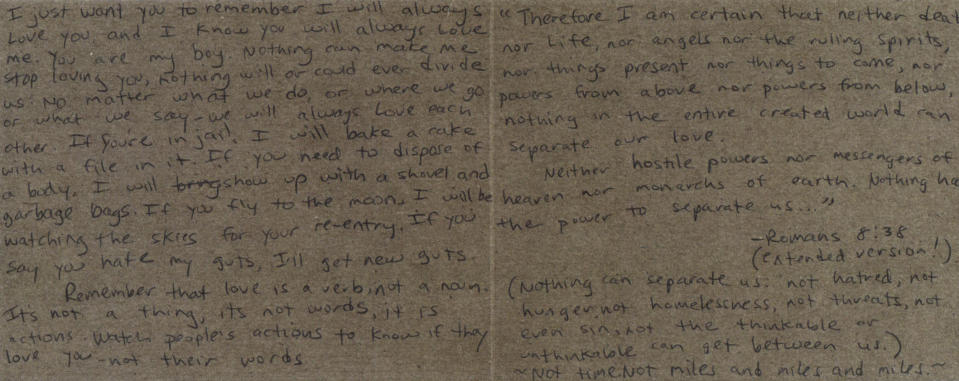 I just want you to remember I will always
Love you and I know you will always Love
me. You are my boy Nothing can make me
stop loving you, nothing will or could ever divide
us. No matter what we do, or where we go
or what we say - we will always Love each
other. If you're in jail, I will bake a cake
with a file in it. If you need to dispose of
a body, I will show up with a shovel and
garbage bags. If you fly to the moon, I will be
watching the skies for your re-entry. If you
say you hate my guts, I'll get new guts.
Remember that love is a verb, not a noun.
It's not a thing, its not words, it is
actions. Watch people's actions to know if they
love you - not their words
"Therefore I am certain that neither deat
nor Life, nor angels nor the ruling spirits,
nor things present nor things to come, nor
powers from above nor powers from below,
nothing in the entire created world can
separate our love.
Neither hostile powers nor messengers of
heaven nor monarchs of earth. Nothing ha
the power to separate us..."
-Romans 8:38
(extended version!)
(Nothing can separate us: not hatred, not
hunger, not homelessness, not threats, not
even sin, not the thinkable or
unthinkable can get between us.)
~Not time. Not miles and miles and miles.~